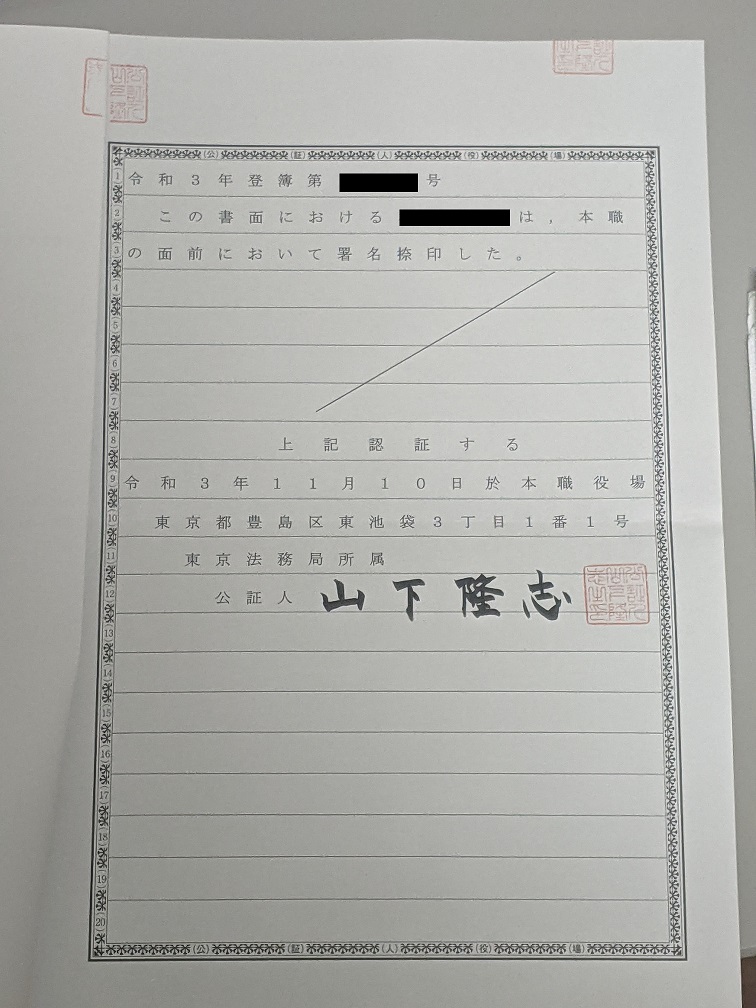 (公)(証)(人)(役)(場)
1 令和3年登簿第 号
2 この書面における は,本職
3 の面前において署名捺印した。
4
5
6
7
8 上記認証する
9 令和3年11月10日於本職役場
10 東京都豊島区東池袋3丁目1番1号
11 東京法務局所属
12 公証人 山下隆志
13
14
15
16
17
18
19
20
(公)(証)(人)(役)(場)